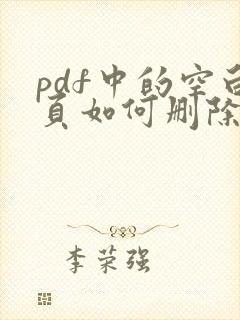 pdf中的空白
页如何删除
李荣强